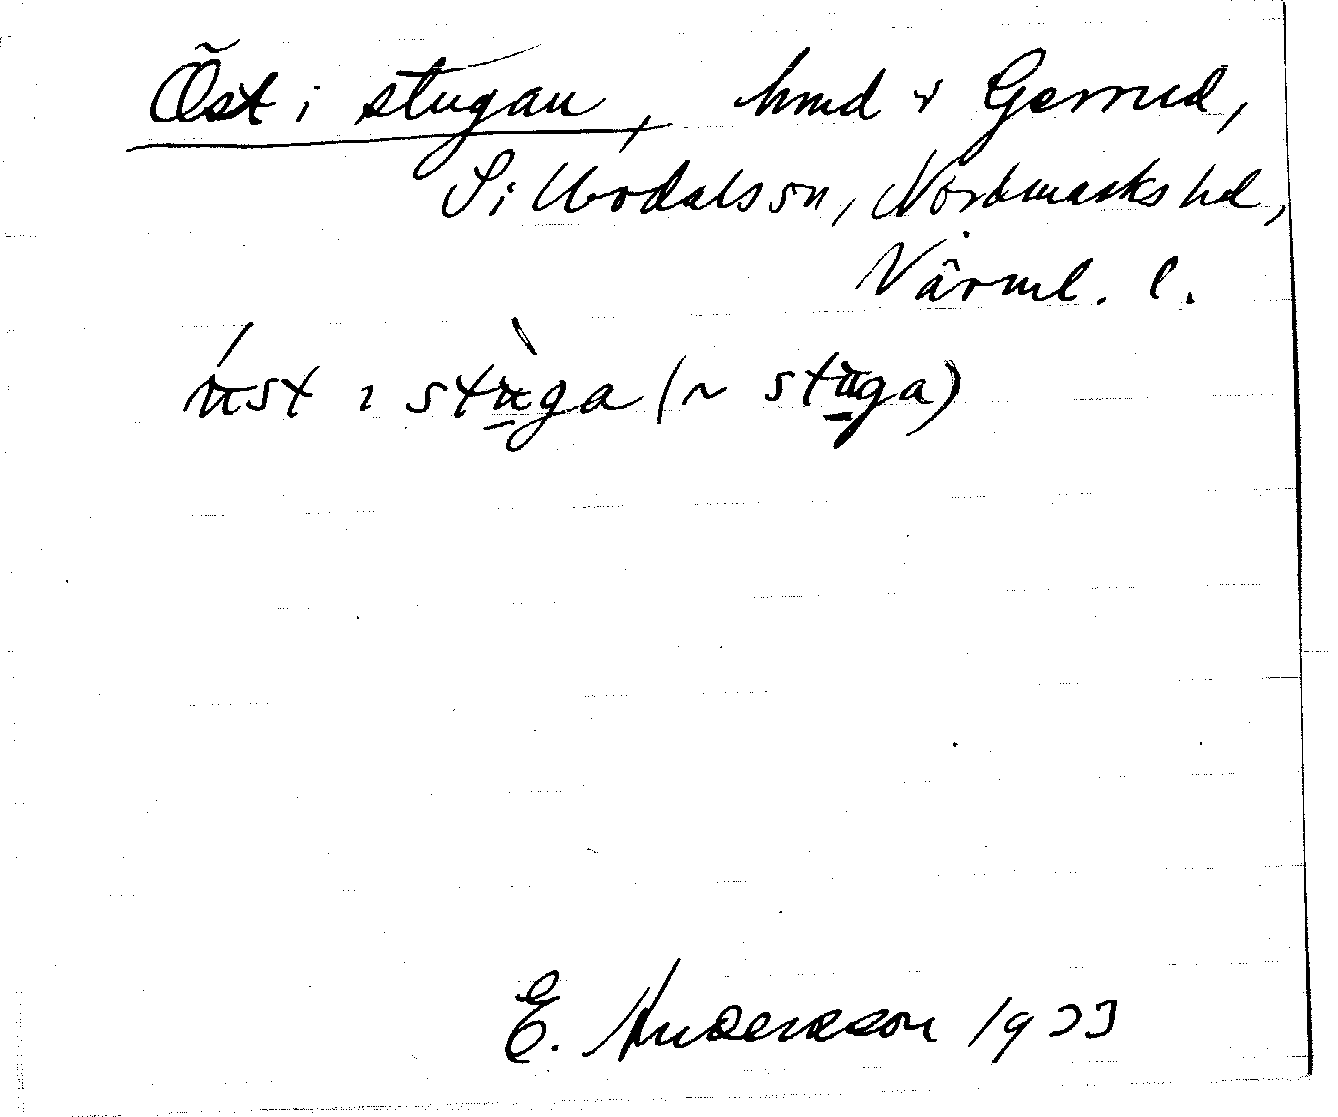 Öst i stugan, hmd i Gerrud,
Silbodals sn, Nordmarks hd,
Värml. l.
ɪ stùga (~ stùga)
E. Andersson 1933